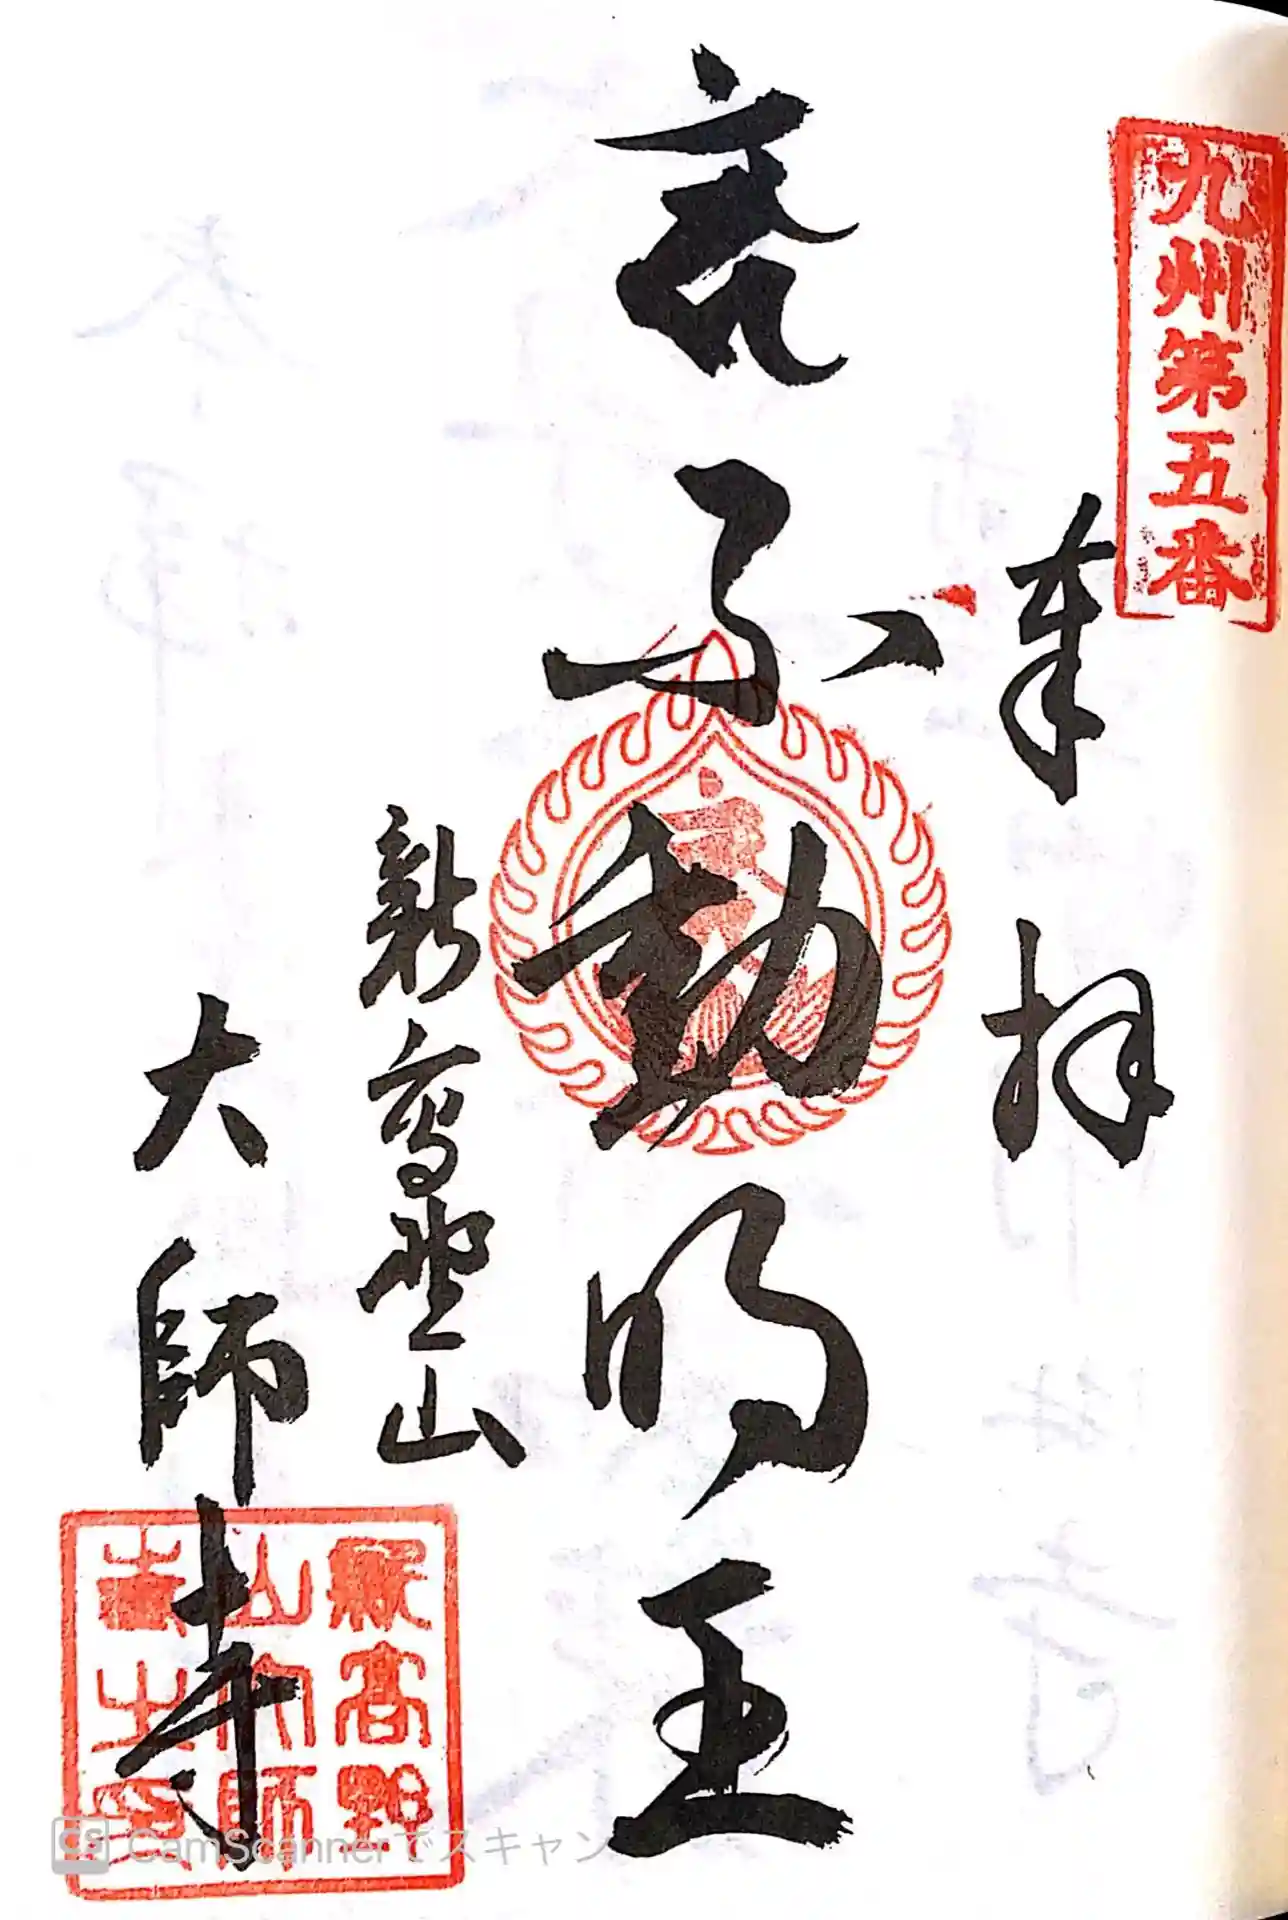 九州第五番
奉拝
不動明王
新高野山
大師寺
新高野
山大師
寺之印
CS CamScannerでスキャン